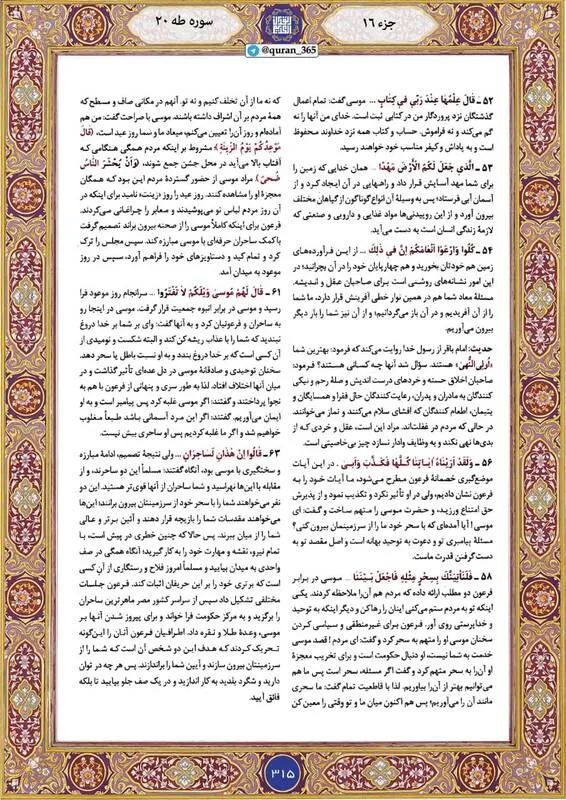 جزء ۱۶
سوره طه ۲۰
@quran_365
۵۲ ـ قَالَ عِلْمُهَا عِنْدَ رَبِّي فِي كِتَابٍ ... موسی گفت: تمام اعمال
گذشتگان نزد پروردگار من در کتابی ثبت است. خدای من آنها را نه
گم می‌کند و نه فراموش. حساب و کتاب همه نزد خداوند محفوظ
است و به پاداش و کیفر مناسب خود خواهند رسید.
۵۳ ـ الَّذِي جَعَلَ لَكُمُ الْأَرْضَ مَهْدًا ... همان خدایی که زمین را
برای شما مهد آسایش قرار داد و راههایی در آن ایجاد کرد و از
آسمان آبی فرستاد؛ پس به وسیلهٔ آن انواع گوناگون از گیاهان مختلف
بیرون آورد و از این روییدنی‌ها مواد غذایی و دارویی و صنعتی که
لازمهٔ زندگی انسان است به دست می‌آید.
۵۴ ـ كُلُوا وَارْعَوْا أَنْعَامَكُمْ إِنَّ فِي ذَلِكَ ... از این فرآورده‌های
زمین هم خودتان بخورید و هم چهارپایان خود را در آن بچرانید؛ در
این امور نشانه‌های روشنی است برای صاحبان عقل و اندیشه.
مسئلهٔ معاد شما هم در همین نوار خطی آفرینش قرار دارد، ما شما
را از آن آفریدیم و در آن باز می‌گردانیم؛ و از آن نیز شما را بار دیگر
بیرون می‌آوریم.
حدیث: امام باقر از رسول خدا روایت می‌کند که فرمود: بهترین شما
«أُولِي النُّهَىٰ» هستند. سؤال شد آنها چه کسانی هستند؟ فرمود:
صاحبان اخلاق حسنه و خردهای درست اندیش و صلهٔ رحم و نیکی
کنندگان به مادران و پدران، رعایت کنندگان حال فقرا و همسایگان و
یتیمان، اطعام کنندگان که افشای سلام می‌کنند و نماز می‌خوانند.
در حالی که مردم در غفلت‌اند. مراد این است، عقل و خردی که از
بدی‌ها نهی نکند و به وظایف وادار نسازد چیز بی‌خاصیتی است.
۵۶ ـ وَلَقَدْ أَرَيْنَاهُ آيَاتِنَا كُلَّهَا فَكَذَّبَ وَأَبَىٰ . در این آیات
موضع‌گیری خصمانهٔ فرعون مطرح می‌شود، ما آیات خود را به
فرعون نشان دادیم، ولی در او تأثیر نکرد و تکذیب نمود و از پذیرش
حق امتناع ورزید، و حضرت موسی را متهم ساخت و گفت: ای
موسی! آیا آمده‌ای که با سحر خود ما را از سرزمینمان بیرون کنی؟
مسئلهٔ پیامبری تو و دعوت به توحید بهانه است و اصل مقصد تو به
دست گرفتن قدرت ماست.
۵۸ ـ فَلَنَأْتِيَنَّكَ بِسِحْرٍ مِثْلِهِ فَاجْعَلْ بَيْنَنَا ... موسی در برابر
فرعون دو مطلب ارائه داده که مردم هم آن‌را ملاحظه کردند. یکی
اینکه تو به مردم ستم می‌کنی اینان را رها کن و دیگر اینکه به توحید
و خداپرستی روی آور. فرعون برای غیرمنطقی و سیاسی کردن
سخنان موسی او را متهم به سحر کرد و گفت: ای مردم! قصد موسی
خدمت به شما نیست، او دنبال حکومت است و برای تخریب معجزهٔ
او آن‌را به سحر متهم کرد و گفت اگر مسئله، سحر است پس ما هم
می‌توانیم بهتر از آن‌را بیاوریم. لذا با قاطعیت تمام گفت: ما سحری
مانند آن را می‌آوریم؛ پس هم اکنون میان ما و تو وقتی را معین کن
که نه ما از آن تخلف کنیم و نه تو. آنهم در مکانی صاف و مسطح که
همهٔ مردم بر آن اشراف داشته باشند. موسی با صراحت گفت: من هم
آماده‌ام و روز آن‌را تعیین می‌کنم، میعاد ما و شما روز عید است، «قَالَ
مَوْعِدُكُمْ يَوْمُ الزِّينَةِ» مشروط بر اینکه مردم همگی هنگامی که
آفتاب بالا می‌آید در محل جشن جمع شوند، «وَأَنْ يُحْشَرَ النَّاسُ
ضُحًى» مراد موسی از حضور گستردهٔ مردم این بود که همگان
معجزهٔ او را مشاهده کنند. روز عید را روز «زینت» نامید برای اینکه در
آن روز مردم لباس نو می‌پوشیدند و معابر را چراغانی می‌کردند.
فرعون برای اینکه کاملاً موسی را از صحنه بیرون براند تصمیم گرفت
با کمک ساحران حرفه‌ای با موسی مبارزه کند. سپس مجلس را ترک
کرد و تمام کید و دستاویزهای خود را فراهم آورد، سپس در روز
موعود به میدان آمد.
۶۱ ـ قَالَ لَهُمْ مُوسَىٰ وَيْلَكُمْ لَا تَفْتَرُوا ... سرانجام روز موعود فرا
رسید و موسی در برابر انبوه جمعیت قرار گرفت. موسی در اینجا رو
به ساحران و فرعونیان کرد و به آنها گفت: وای بر شما بر خدا دروغ
نبندید که شما را با عذاب ریشه کن کند و البته شکست و نومیدی از
آن کسی است که بر خدا دروغ بندد و به او نسبت باطل یا سحر دهد.
سخنان توحیدی و صادقانهٔ موسی در دل عده‌ای تأثیر گذاشت و در
میان آنها اختلاف افتاد. لذا به طور سری و پنهانی از فرعون با هم به
نجوا پرداختند و گفتند: اگر موسی غلبه کرد پس پیامبر است و به او
ایمان می‌آوریم. گفتند: اگر این مرد آسمانی باشد طبعاً مغلوب
خواهیم شد و اگر ما غلبه کردیم پس او ساحری بیش نیست.
۶۳ ـ قَالُوا إِنْ هَٰذَانِ لَسَاحِرَانِ ... ولی نتیجهٔ تصمیم، ادامهٔ مبارزه
و سختگیری با موسی بود، آنگاه گفتند: مسلماً این دو ساحرند، و از
مقابله با این‌ها نهراسید و شما ساحران از آنها قوی‌تر هستید. این دو
نفر می‌خواهند شما را با سحر خود از سرزمینتان بیرون برانند؛ این‌ها
می‌خواهند مقدسات شما را بازیچه قرار دهند و آئین برتر و عالی
شما را از میان ببرند. پس حالا که چنین خطری در پیش است، با
تمام نیرو، نقشه و مهارت خود را به کار گیرید؛ آنگاه همگی در صف
واحدی به میدان بیایید و مسلماً امروز فلاح و رستگاری از آن کسی
است که برتری خود را بر این حریفان اثبات کند. فرعون جلسات
مختلفی تشکیل داد سپس از سراسر کشور مصر ماهرترین ساحران
را برگزید و به مرکز حکومت فرا خواند و برای پیروز شدن آنها بر
موسی، وعدهٔ طلا و نقره داد. اطرافیان فرعون آنان را این‌گونه
تحریک کردند که هدف این دو شخص آن است که شما را از
سرزمینتان بیرون سازند و آیین شما را براندازند. پس هر چه در توان
دارید و شگرد بلدید به کار اندازید و در یک صف جلو بیایید تا بلکه
فائق آیید.
۳۱۵